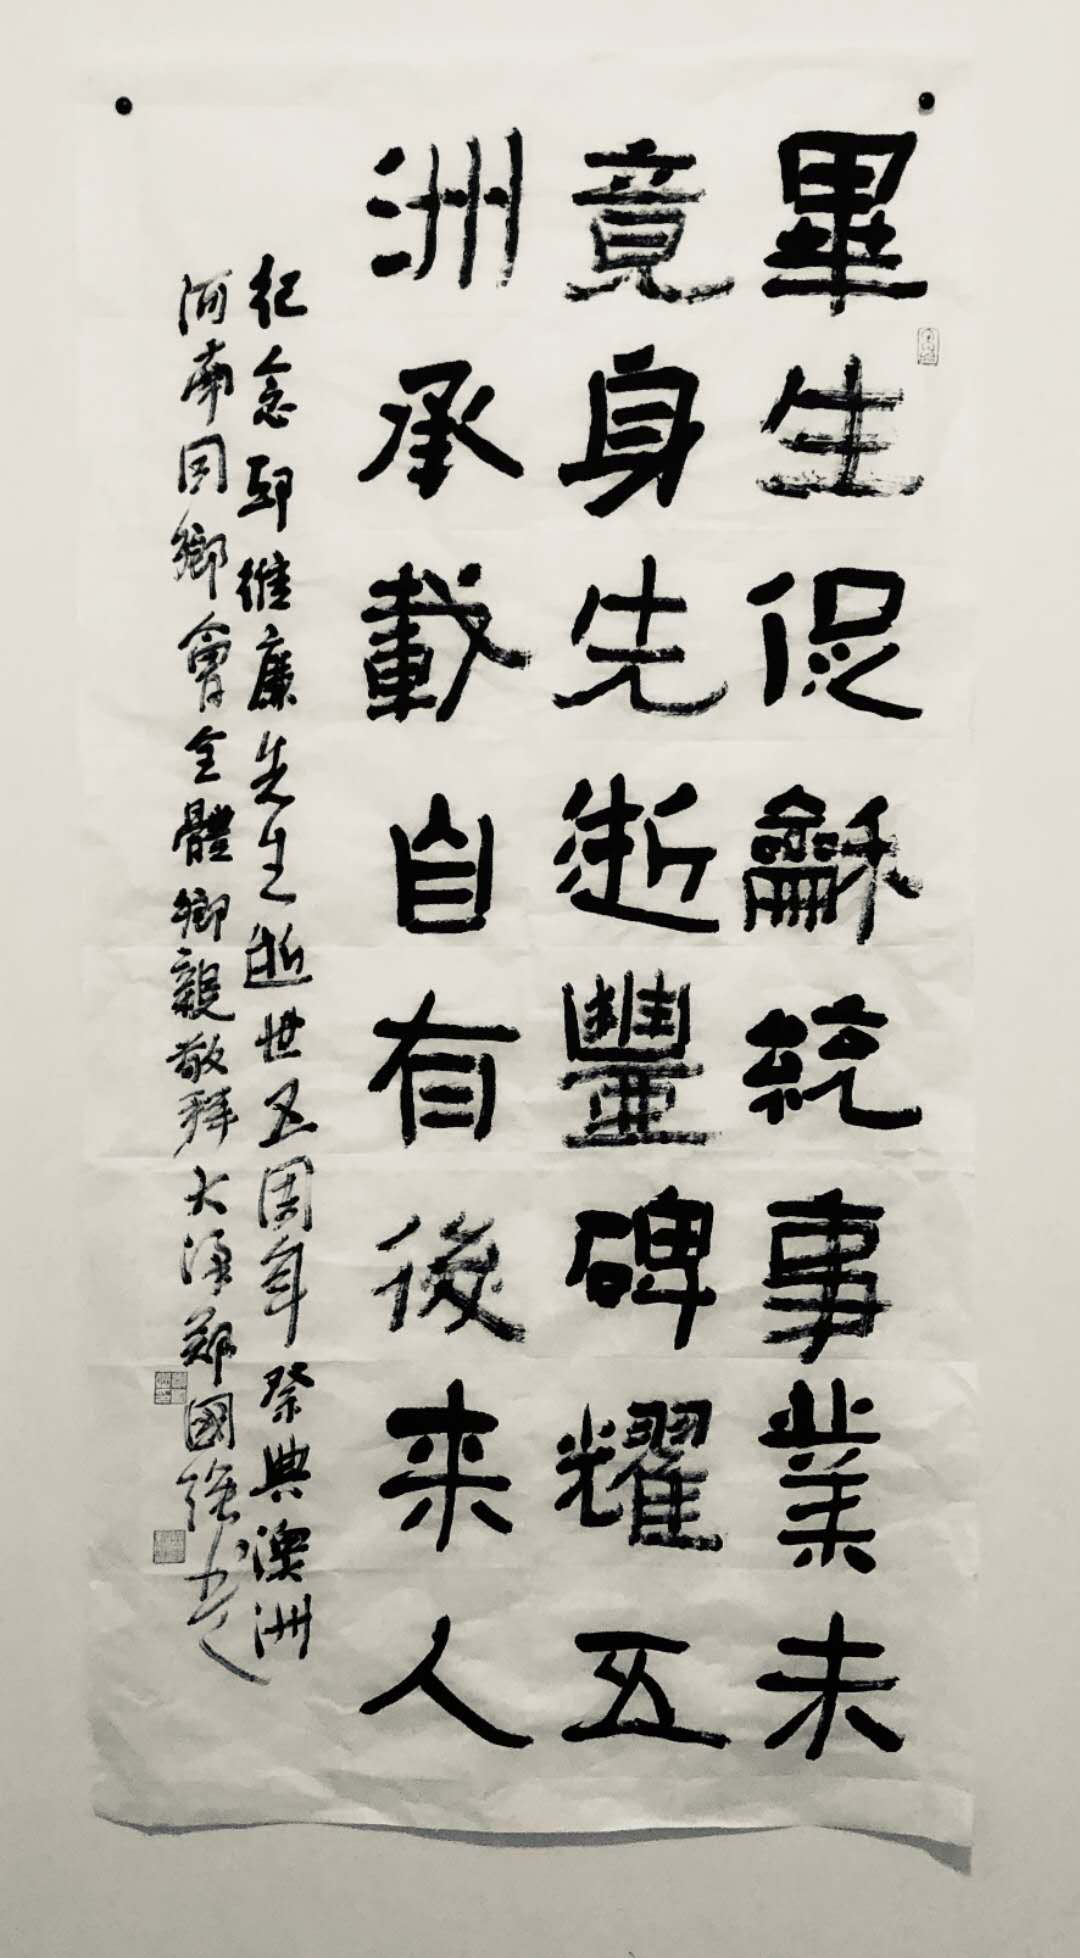 畢生促龢統事業未
竟身先逝豐碑耀五
洲承載自有後來人
紀念邱維廉先生逝世五周年祭典澳洲
河南同鄉會全體鄉親敬拜大漢鄭國強書